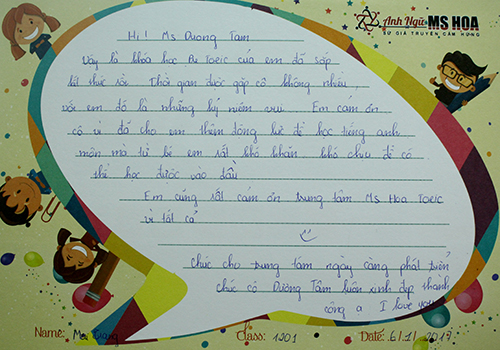 Anh Ngữ MS HOA
SỨ GIẢ TRUYỀN CẢM HỨNG
Hi! Ms Dương Tâm
Vậy là khóa học Pre Toeic của em đã sắp
kết thúc rồi. Thời gian được gặp cô không nhiều
với em đó là những kỷ niệm vui. Em cám ơn
cô vì đã cho em thêm động lực để học tiếng anh
môn mà từ bé em rất khó khăn khó chịu để có
thể học được vào đầu
Em cũng rất cám ơn trung tâm Ms Hoa TOEIC
vì tất cả
Chúc cho trung tâm ngày càng phát triển
chúc cô Dương Tâm luôn xinh đẹp thành
công ạ I love you
Name: Giang Class: 1901 Date: 6/1/2019